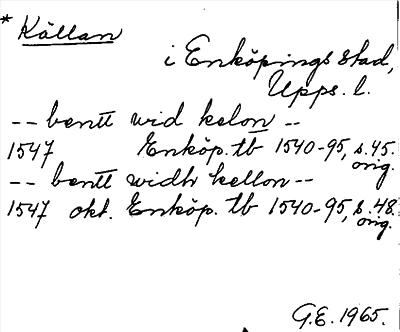 * Källan
i Enköpings stad,
Upps. l.
-- bentt wid kelon --
1547 Enköp. tb 1540-95, s. 45.
orig.
-- bentt widh kellon --
1547 okt. Enköp. tb 1540-95, s. 48.
orig.
G.E. 1965.